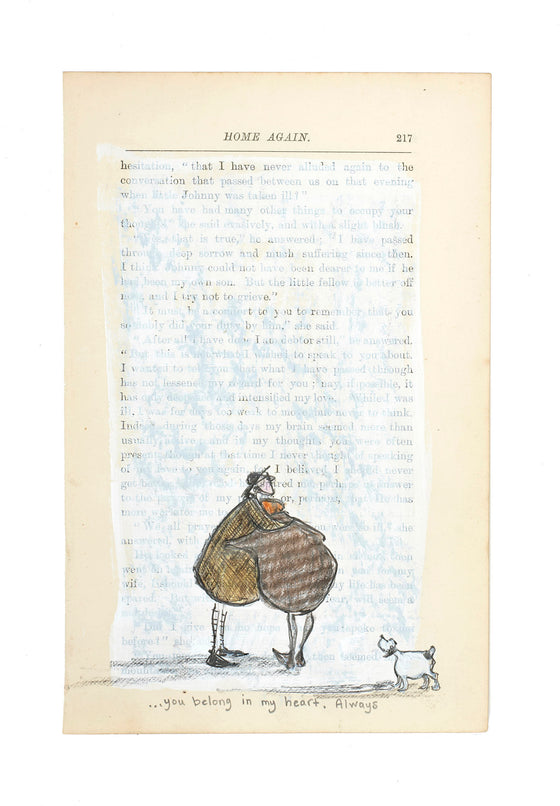 HOME AGAIN. 217
hesitation, "that I have never alluded again to the
conversation that passed between us on that evening
when little Johnny was taken ill?"
"You have had many other things to occupy your
thoughts," she said evasively, and with a slight blush.
"Yes, that is true," he answered; "I have passed
through deep sorrow and much suffering since then.
I think Johnny could not have been dearer to me if he
had been my own son. But the little fellow is better off
now, and I try not to grieve."
"It must be a comfort to you to remember that you
so nobly did your duty by him," she said.
"After all I have done I am debtor still," he answered.
"But this is not what I wished to speak to you about.
I wanted to tell you that what I have passed through
has not lessened my regard for you; nay, if possible, it
has only deepened and intensified my love. Whilst I was
ill, I was for days too weak to move, but never to think.
Indeed, during those days my brain seemed more than
usually active, and in my thoughts you were often
present, though at that time I never thought of speaking
of my love to you again. I believed I should never
get be
to the of my or, perhaps, that He has
more work for me to
"We all pray
answered, with
He looked
went on
wife, I shou my life has been
spared. But
"Do I give you no hope you spoke to me
before?" she
then seemed
...you belong in my heart. Always